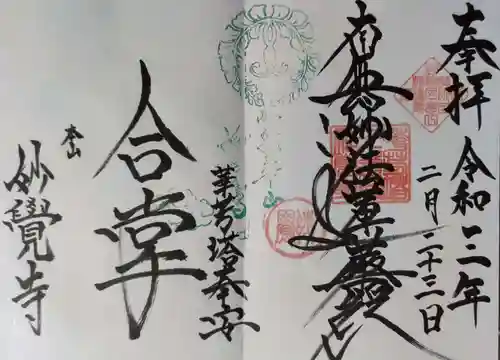 奉拝
令和三年
二月二十三日
南無妙法蓮華経
華芳塔奉安
合掌
本山
妙覺寺